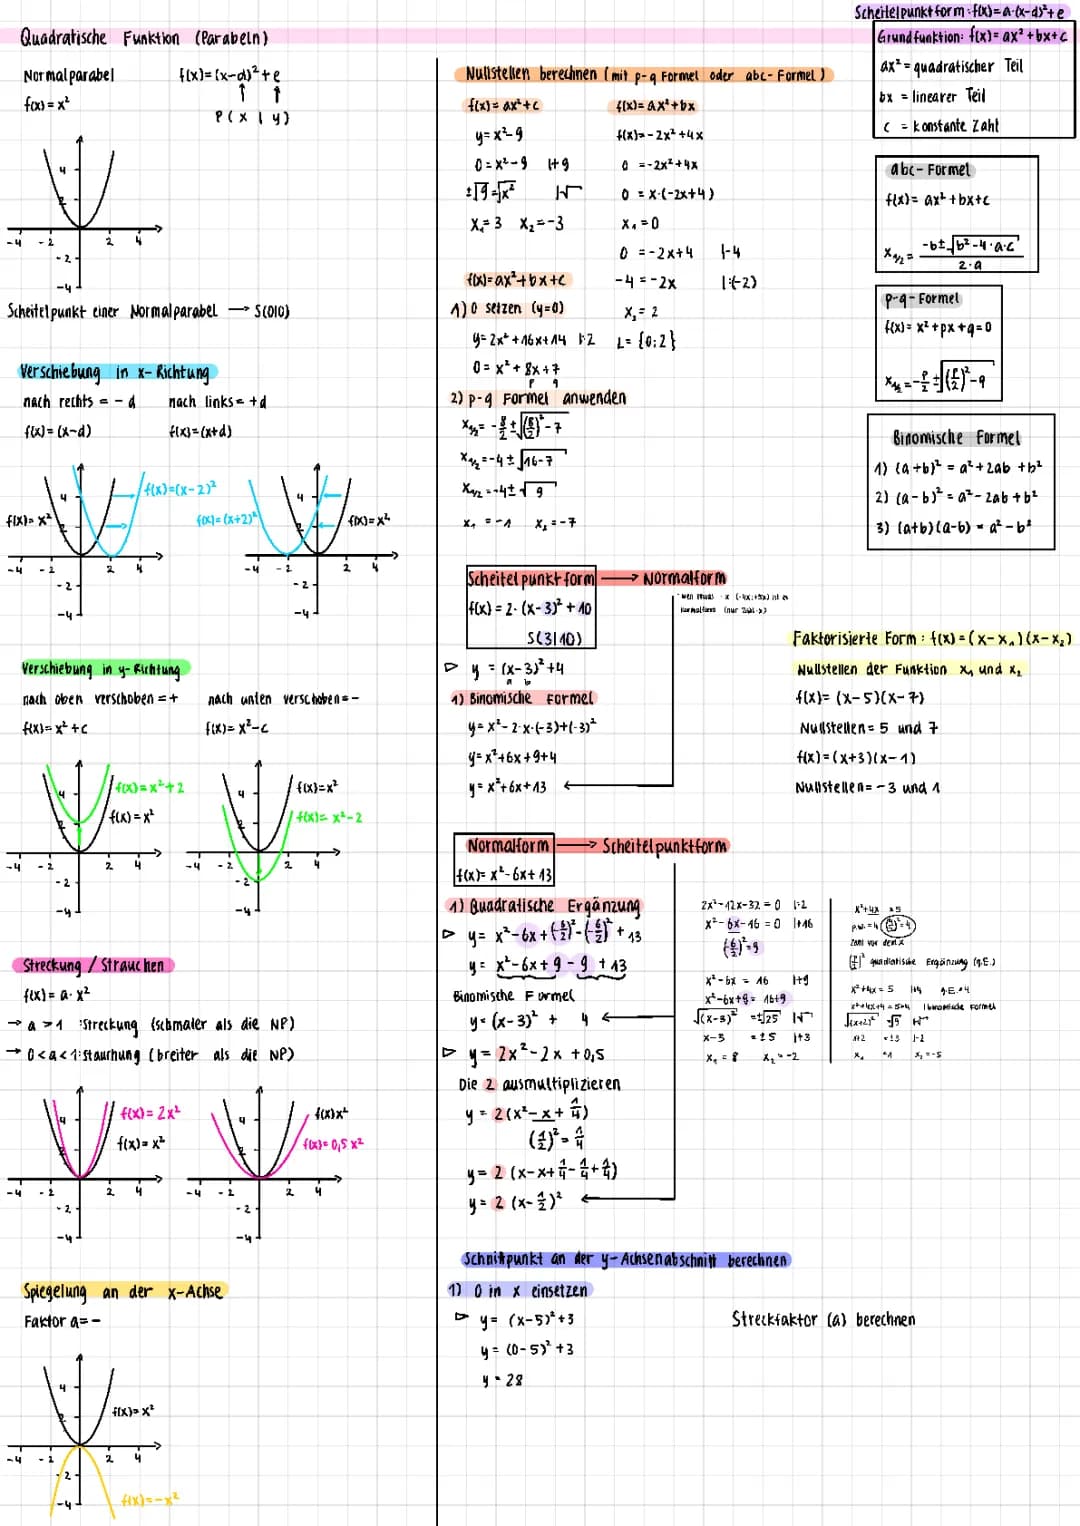 Scheitelpunktform: f(x) = a·(x-d)²+e
Quadratische Funktion (Parabeln)
Normalparabel
f(x) = x²
f(x) = (x-d)² + e
↑ ↑
P ( x | y )
Scheitelpunkt einer Normalparabel → S(0|0)
Verschiebung in x-Richtung
nach rechts = - d
nach links = +d
f(x) = (x-d)
f(x) = (x+d)
f(x) = x²
f(x) = (x-2)²
f(x) = (x+2)²
f(x) = x²
Verschiebung in y-Richtung
nach oben verschoben = +
nach unten verschoben = -
f(x) = x² + c
f(x) = x² - c
f(x) = x² + 2
f(x) = x²
f(x) = x²
f(x) = x² - 2
Streckung / Strauchen
f(x) = a · x²
→ a > 1 : Streckung (schmaler als die NP)
→ 0 < a < 1: stauchung (breiter als die NP)
f(x) = 2x²
f(x) = x²
f(x) x²
f(x) = 0,5 x²
Spiegelung an der x-Achse
Faktor a = -
f(x) = x²
f(x) = - x²
Nullstellen berechnen (mit p-q Formel oder abc-Formel)
f(x) = ax² + c
y = x² - 9
0 = x² - 9 |+9
±√9 = √x² |√
x₁ = 3 x₂ = -3
f(x) = ax² + bx
f(x) = -2x² + 4x
0 = -2x² + 4x
0 = x·(-2x+4)
x₁ = 0
0 = -2x + 4 |-4
-4 = -2x |:(-2)
x₂ = 2
L = {0; 2}
f(x) = ax² + bx + c
1) 0 setzen (y=0)
y = 2x² + 16x + 14 |:2
0 = x² + 8x + 7
p q
2) p-q Formel anwenden
x₁/₂ = -8/2 ± √((8/2)² - 7)
x₁/₂ = -4 ± √(16-7)
x₁/₂ = -4 ± √9
x₁ = -1 x₂ = -7
Scheitelpunktform → Normalform
f(x) = 2·(x-3)² + 10
S(3|10)
▷ y = (x-3)² + 4
a b
1) Binomische Formel
y = x² - 2·x·(-3) + (-3)²
y = x² + 6x + 9 + 4
y = x² + 6x + 13
Normalform → Scheitelpunktform
f(x) = x² - 6x + 13
1) Quadratische Ergänzung
▷ y = x² - 6x + (-6/2)² - (-6/2)² + 13
y = x² - 6x + 9 - 9 + 13
Binomische Formel
y = (x-3)² + 4
▷ y = 2x² - 2x + 0,5
Die 2 ausmultiplizieren
y = 2(x² - x + 1/4)
(1/2)² = 1/4
y = 2 (x-x+1/4-1/4+1/4)
y = 2 (x-1/2)²
Schnittpunkt an der y-Achsenabschnitt berechnen
1) 0 in x einsetzen
▷ y = (x-5)² + 3
y = (0-5)² + 3
y = 28
Streckfaktor (a) berechnen
2x² - 12x - 32 = 0 |:2
x² - 6x - 16 = 0 |+16
(-6/2)² = 9
x² - 6x = 16 |+9
x² - 6x + 9 = 16 + 9
√(x-3)² = ±√25 |√
x-3 = ±5 |+3
x₁ = 8 x₂ = -2
x² + 4x = 5
Zahl vor dem x
quadratische Ergänzung (q.E.)
x² + 4x = 5 |+4 q.E. = 4
x² + 4x + 4 = 5+4 | binomische Formel
√(x+2)² √9 |√
x+2 = ±3 |-2
x₁ = 1 x₂ = -5
Grundfunktion: f(x) = ax² + bx + c
ax² = quadratischer Teil
bx = linearer Teil
c = konstante Zahl
abc-Formel
f(x) = ax² + bx + c
x₁/₂ = (-b ± √(b² - 4·a·c)) / (2·a)
p-q-Formel
f(x) = x² + px + q = 0
x₁/₂ = -p/2 ± √((p/2)² - q)
Binomische Formel
1) (a+b)² = a² + 2ab + b²
2) (a-b)² = a² - 2ab + b²
3) (a+b)(a-b) = a² - b²
Faktorisierte Form: f(x) = (x-x₁)(x-x₂)
Nullstellen der Funktion x₁ und x₂
f(x) = (x-5)(x-7)
Nullstellen = 5 und 7
f(x) = (x+3)(x-1)
Nullstellen = -3 und 1